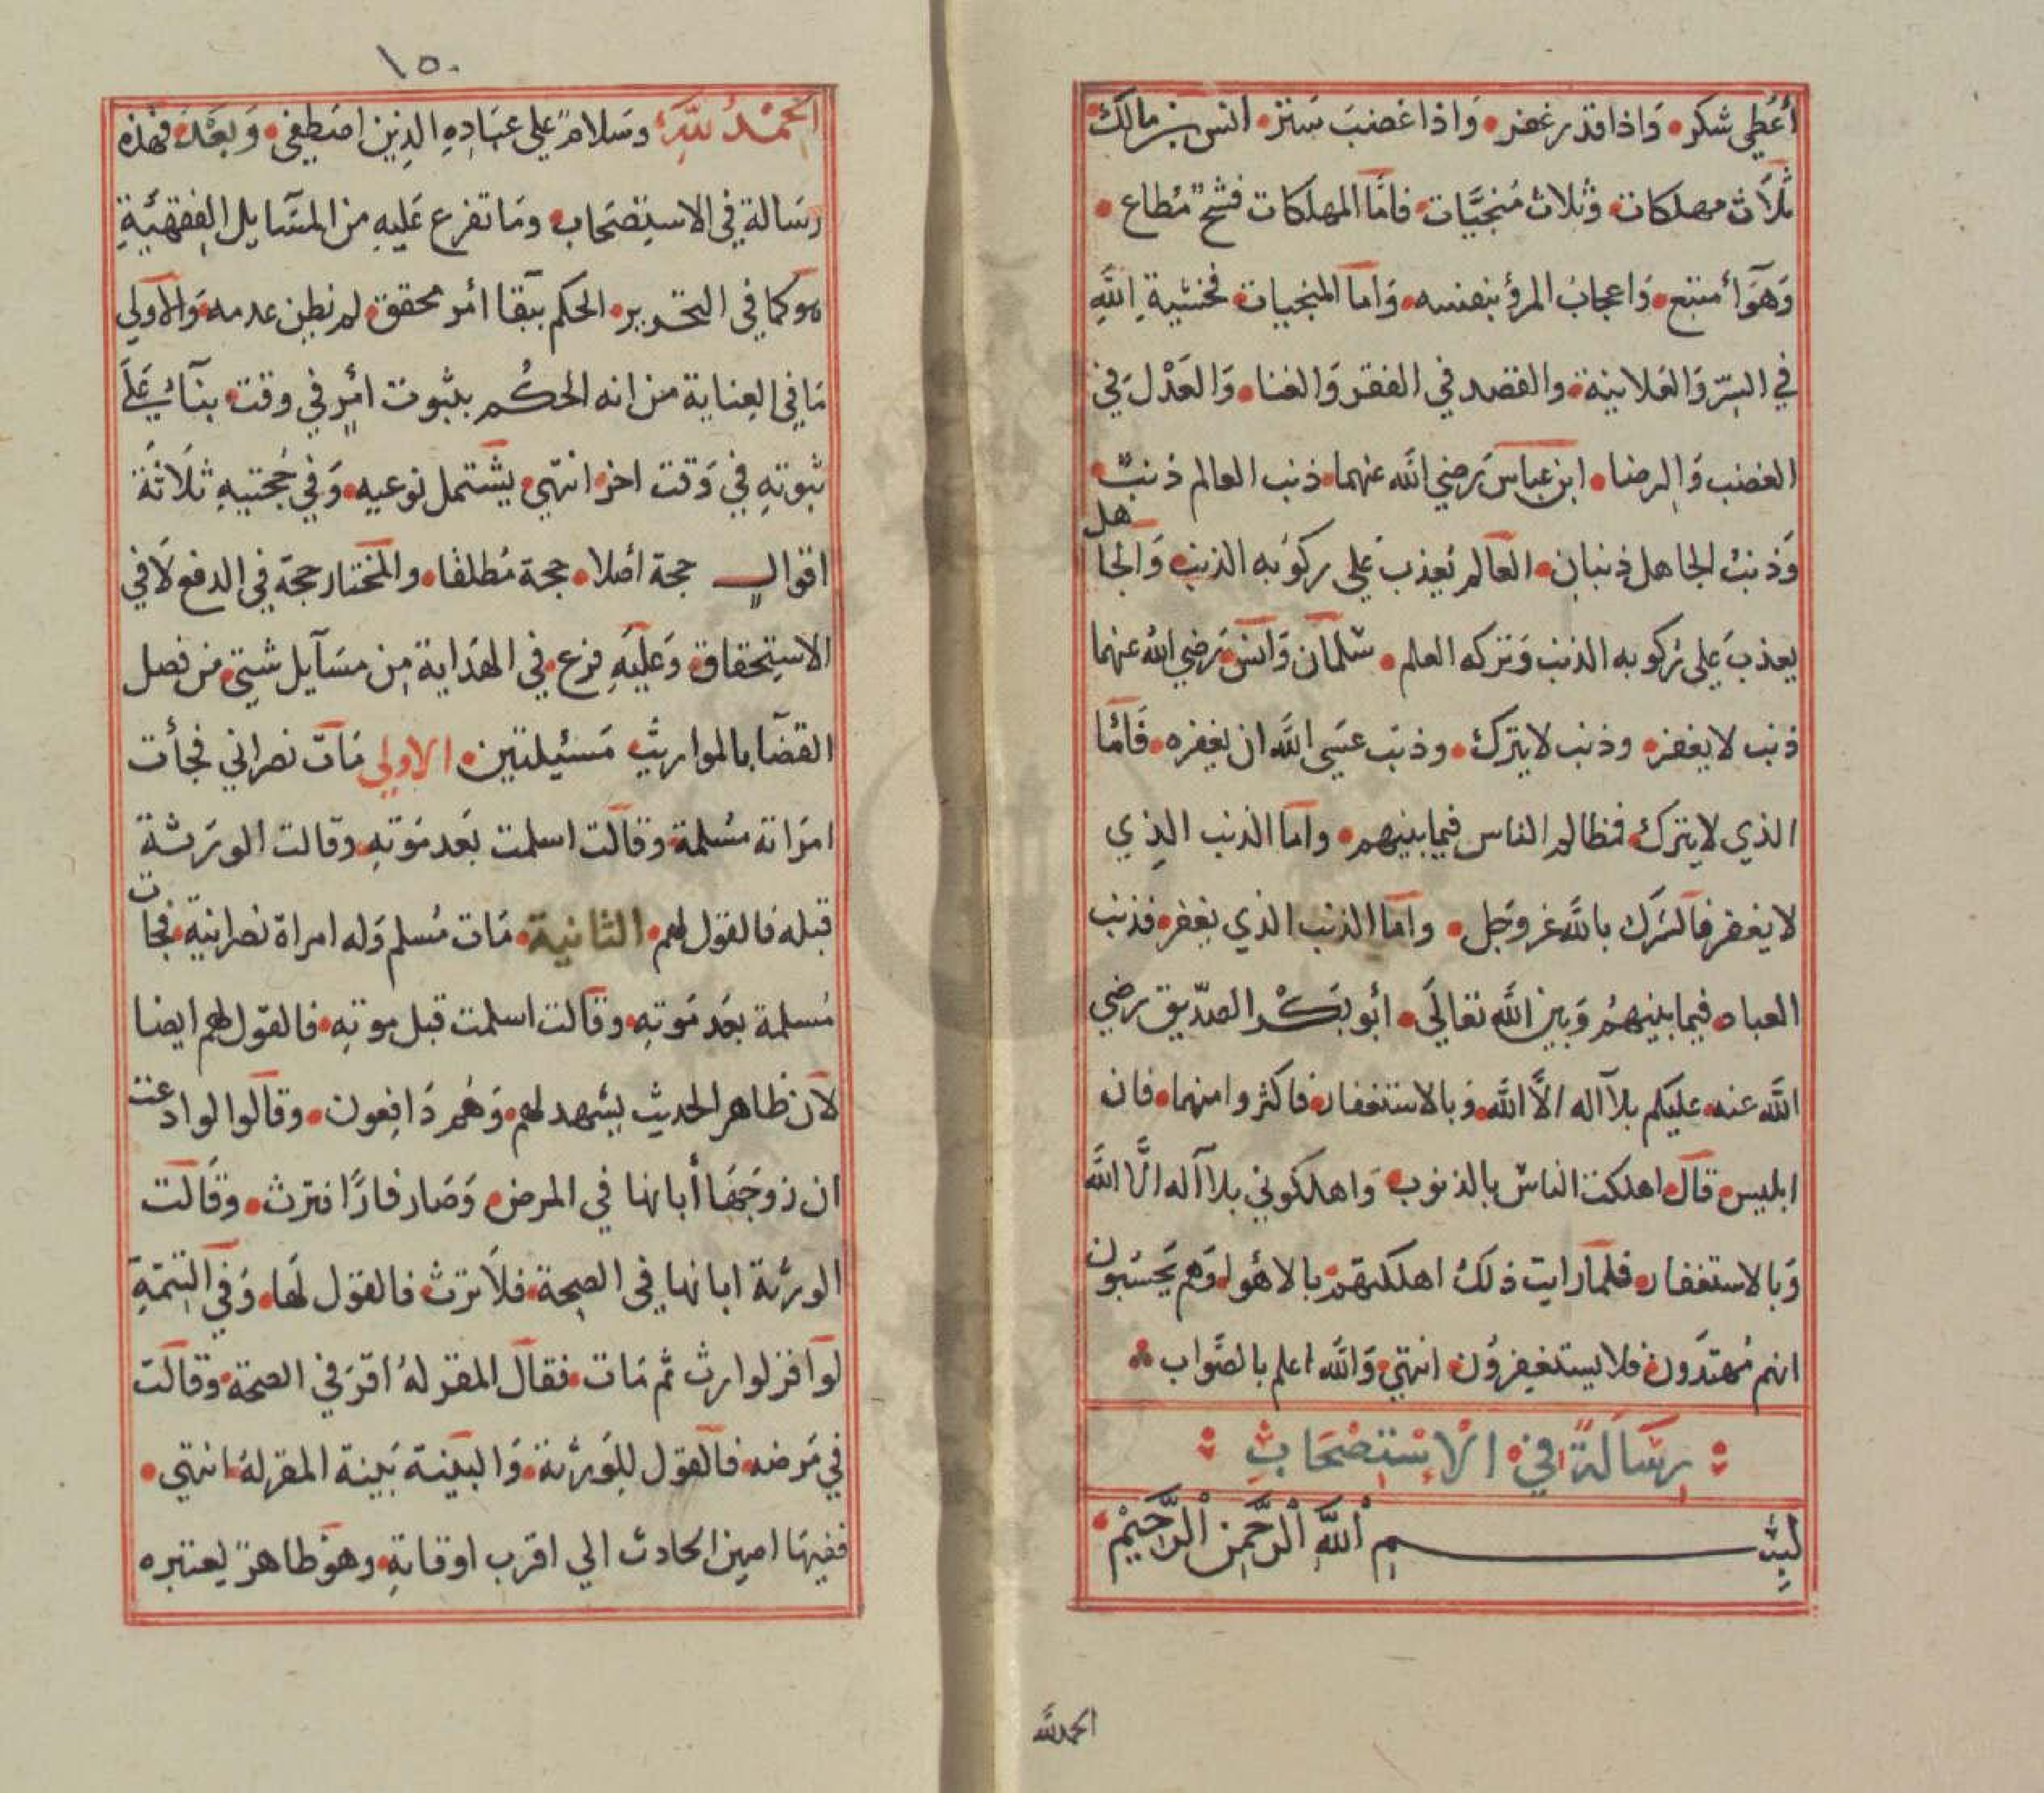 أعطي شكر واذا قدر غفر واذا غضب ستر انس بن مالك
ثلاث مهلكات وثلاث منجيات فاما المهلكات فشح مطاع
وهوآ متبع واعجاب المرؤ بنفسه واما المنجيات فخشية الله
في السر والعلانية والقصد في الفقر والغنا والعدل في
الغضب والرضا ابن عباس رضي الله عنهما ذنب العالم ذنب
وذنب الجاهل ذنبان العالم يعذب علي ركوبه الذنب والجاهل
يعذب علي ركوبه الذنب وتركه العلم سلمان وانس رضي الله عنهما
ذنب لا يغفر وذنب لا يترك وذنب عسي الله ان يغفره فامّا
الذي لا يترك فمظالم الناس فيما بينهم واما الذنب الذي
لا يغفر فالشرك بالله عز وجل واما الذنب الذي يغفر فذنب
العباد فيما بينهم وبين الله تعالي أبو بكر الصديق رضي
الله عنه عليكم بلا آله الا الله وبالاستغفار فاكثروا منهما فان
ابليس قال اهلكت الناس بالذنوب واهلكوني بلا آله الا الله
وبالاستغفار فلما رايت ذلك اهلكتهم بالاهوا وهم يحسبون
انهم مهتدون فلا يستغفرون انتهي والله اعلم بالصواب
رسالة في الاستصحاب
بسم الله الرحمن الرحيم
الحمد لله
١٥٠
الحمد لله وسلام علي عباده الذين اصطفي وبعد فهذه
رسالة في الاستصحاب وما تفرع عليه من المسآيل الفقهية
هو كما في التحرير الحكم ببقا امر محقق لم يظن عدمه والاولي
ما في العناية من انه الحكم بثبوت أمر في وقت بنآء علي
ثبوته في وقت اخر انتهي يشتمل نوعيه وفي حجتيه ثلاثة
اقوال حجة أصلا حجة مطلقا والمختار حجة في الدفع لا في
الاستحقاق وعليه فرع في الهداية من مسآيل شتي من فصل
القضا بالمواريث مسئيلتين الاولي مات نصراني فجأت
امراته مسلمة وقالت اسلمت بعد موته وقالت الورثة
قبله فالقول لهم الثانية مات مسلم وله امراة نصرانية فجات
مسلمة بعد موته وقالت اسلمت قبل موته فالقول لهم ايضا
لان ظاهر الحديث يشهد لهم وهم دافعون وقالوا لو ادعت
ان زوجها أبانها في المرض وصار فارا فترث وقالت
الورثة ابانها في الصحة فلا ترث فالقول لها وفي التتمة
لو اقر لوارث ثم مات فقال المقر له اقر في الصحة وقالت
في مرضه فالقول للورثة والبينة بينة المقر له انتهي
ففيها امين الحادث الي اقرب اوقاته وهو ظاهر يعتبره